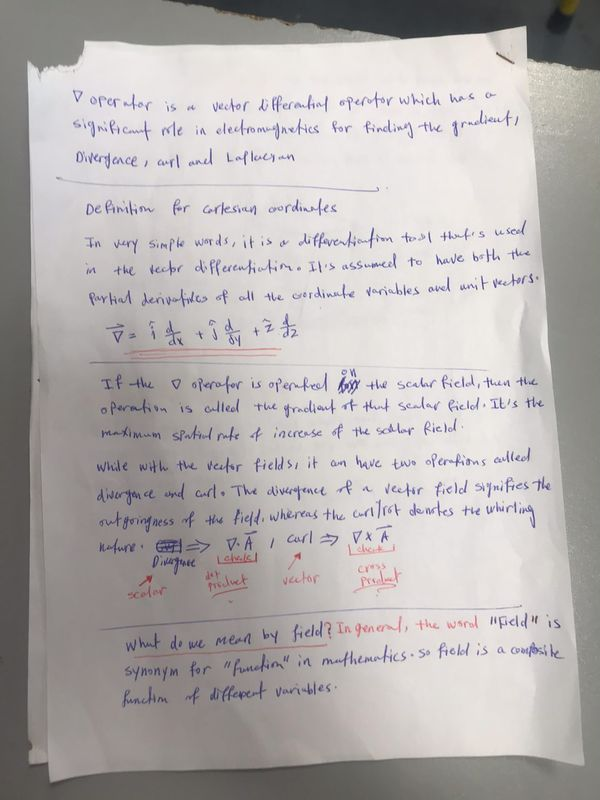 ∇ operator is a vector differential operator which has a
significant role in electromagnetics for finding the gradient,
Divergence, curl and Laplacian
Definition for cartesian coordinates
In very simple words, it is a differentiation tool that's used
in the vector differentiation. It's assumed to have both the
Partial derivatives of all the coordinate variables and unit vectors.
∇⃗ = î d/dx + ĵ d/dy + ẑ d/dz
If the ∇ operator is operated on the scalar field, then the
operation is called the gradient of that scalar field. It's the
maximum spatial rate of increase of the scalar field.
While with the vector fields, it can have two operations called
divergence and curl. The divergence of a vector field signifies the
outgoingness of the field, whereas the curl/rot denotes the whirling
nature. Divergence ⇒ ∇·A⃗ , curl ⇒ ∇×A⃗
check check
scalar dot product vector cross product
What do we mean by field? In general, the word "Field" is
synonym for "function" in mathematics. so field is a composite
function of different variables.